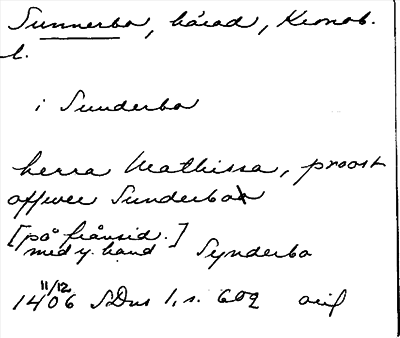 Sunnerbo, härad, Kronob.
l.
i Sunderbo
herra Mathissa, proost
offwer Sunderbo
[på frånsid.]
med y. hand Synderbo
11/12
1406 SDns 1, s. 602 orig